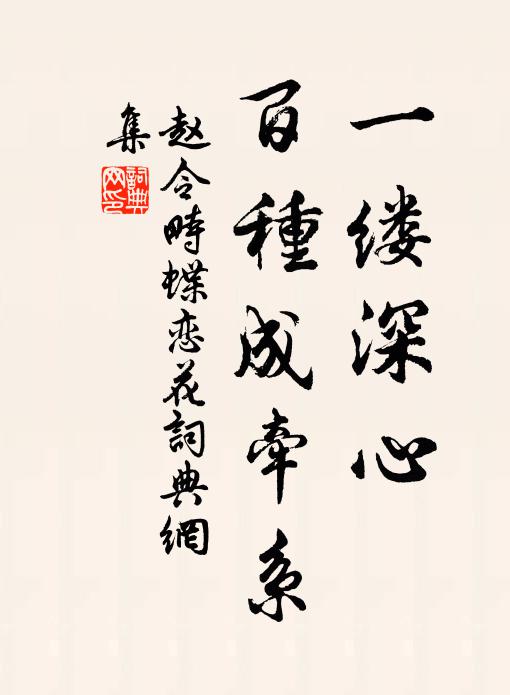 一缕深心
百種成牵系
赵令畤蝶恋花詞典網
集
詞典网印